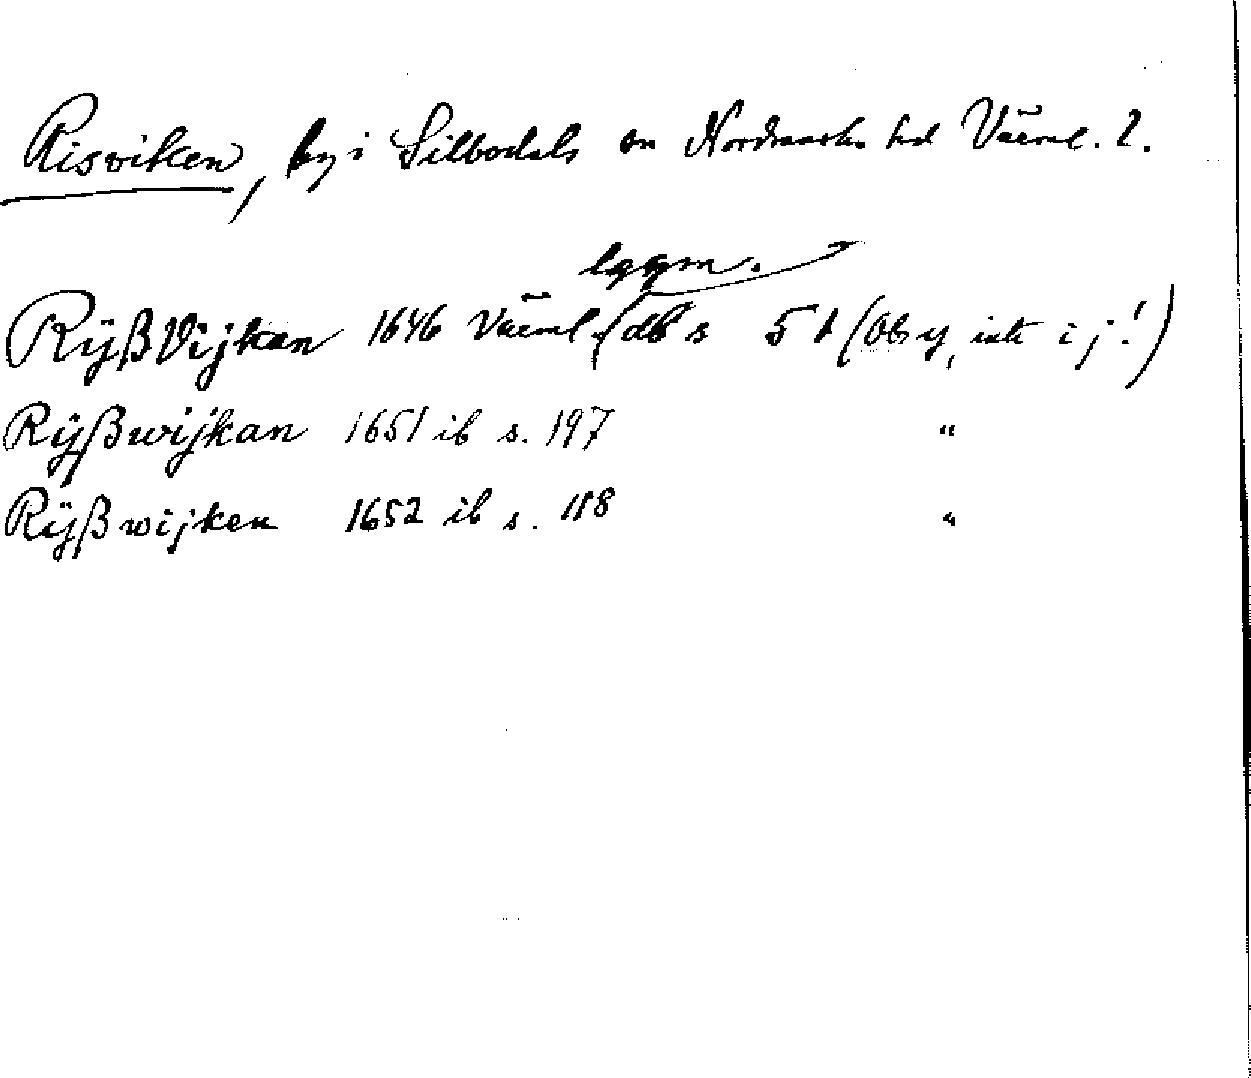 Risviken, by i Silbodals sn Nordmarks hd Värml. l.
lggm.
RÿßVijken 1646 Värml. db s 51 (Obs y, inte i j!)
Rÿßwijkan 1651 ib s. 197 "
Rÿßwijken 1652 ib s. 118 "